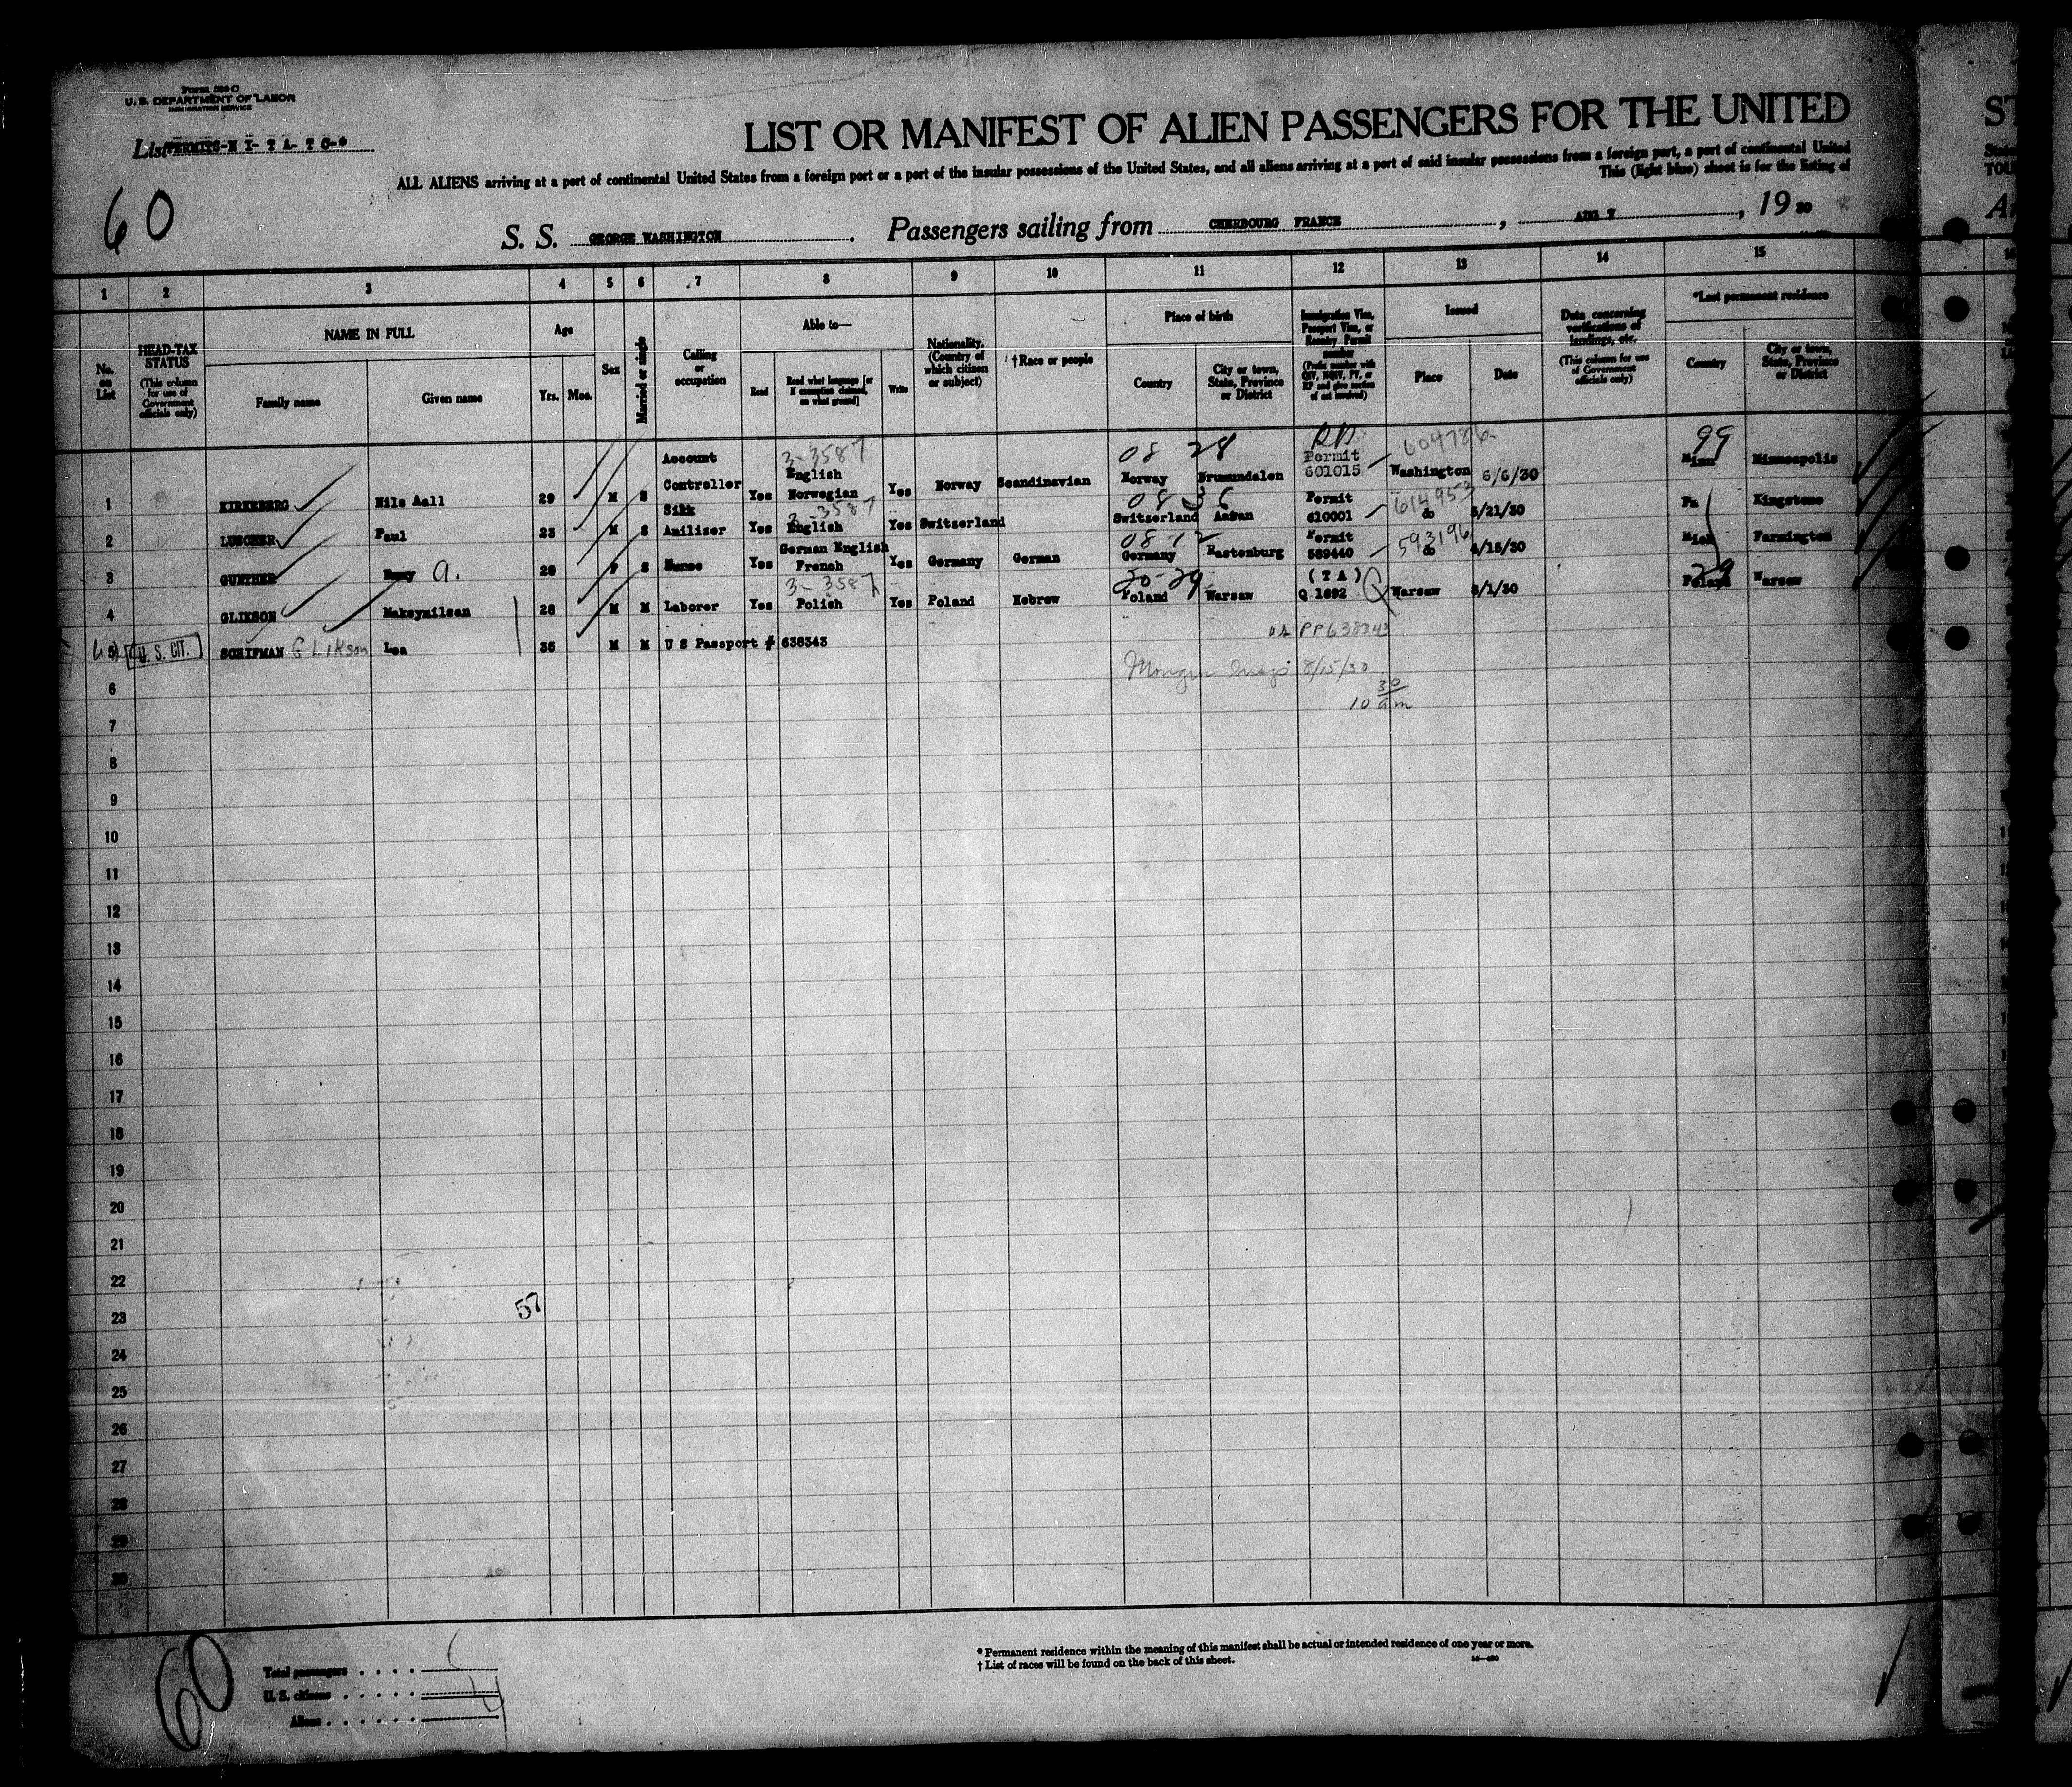 Form 500 C
U. S. DEPARTMENT OF LABOR
IMMIGRATION SERVICE
List PERMITS-N I- T A- T C-*
60
LIST OR MANIFEST OF ALIEN PASSENGERS FOR THE UNITED
ST
ALL ALIENS arriving at a port of continental United States from a foreign port or a port of the insular possessions of the United States, and all aliens arriving at a port of said insular possessions from a foreign port, a port of continental United
This (light blue) sheet is for the listing of
S. S. GEORGE WASHINGTON. Passengers sailing from CHERBOURG FRANCE, AUG 7, 19 30
1 2 3 4 5 6 7 8 9 10 11 12 13 14 15
No. on List
HEAD-TAX STATUS (This column for use of Government officials only)
NAME IN FULL
Family name
Given name
Age
Yrs. Mos.
Sex
Married or single
Calling or occupation
Able to—
Read
Read what language [or if exemption claimed, on what ground]
Write
Nationality. (Country of which citizen or subject)
† Race or people
Place of birth
Country
City or town, State, Province or District
Immigration Visa, Passport Visa, or Reentry Permit number (Prefix number with QIV, NQIV, PV, or RP and give section of act involved)
Issued
Place
Date
Data concerning verifications of landings, etc. (This column for use of Government officials only)
*Last permanent residence
Country
City or town, State, Province or District
Account 3-3587 08 28 Permit 604786 99
1 KIRKEBERG Nils Aall 29 M S Controller Yes English Norwegian Yes Norway Scandinavian Norway Brumundalen 601015 Washington 6/6/30 Minn Minneapolis
Silk 3-3587 08 36 Permit 614953
2 LUSCHER Paul 23 M S Yes English Yes Switzerland Switzerland 610001 do 5/21/30 Pa Kingstone
German English 08 12 Permit 593196
3 GUNTHER a. 29 F S Nurse Yes French Yes Germany German Germany Rastenburg 589440 do 4/15/30 Mich Farmington
3-3587 20-29 (T A) 29
4 GLIKSON Maksymilsan 28 M M Laborer Yes Polish Yes Poland Hebrew Poland Warsaw Q 1692 Warsaw 8/1/30 Poland Warsaw
5 U. S. CIT. SCHIFMAN Glikson Lea 35 M M U S Passport # 638343
PP638343
8/15/30
10 30 am
6
7
8
9
10
11
12
13
14
15
16
17
18
19
20
21
22
57
23
24
25
26
27
28
29
30
60
Total passengers
U. S. citizens
Aliens
* Permanent residence within the meaning of this manifest shall be actual or intended residence of one year or more.
† List of races will be found on the back of this sheet.